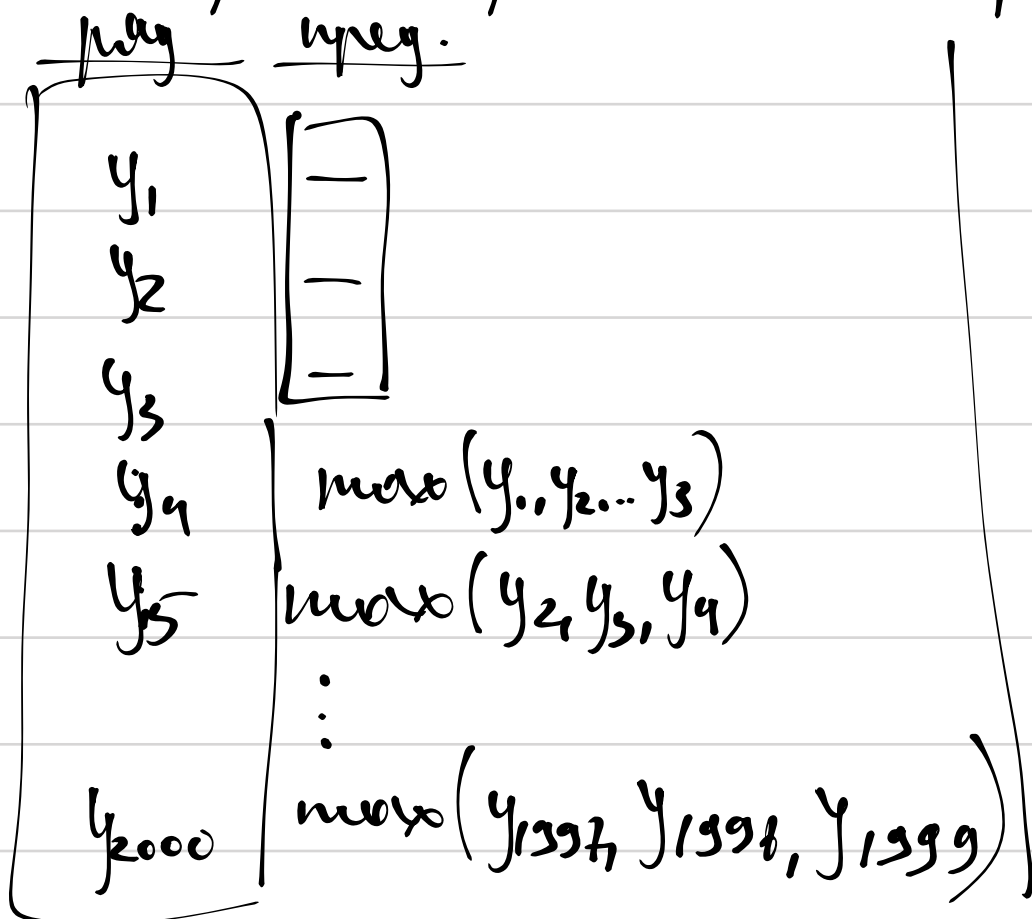 ряд пред.
y₁ —
y₂ —
y₃ —
y₄ max(y₁, y₂... y₃)
y₅ max(y₂, y₃, y₄)
⋮
y₂₀₀₀ max(y₁₉₉₇, y₁₉₉₈, y₁₉₉₉)